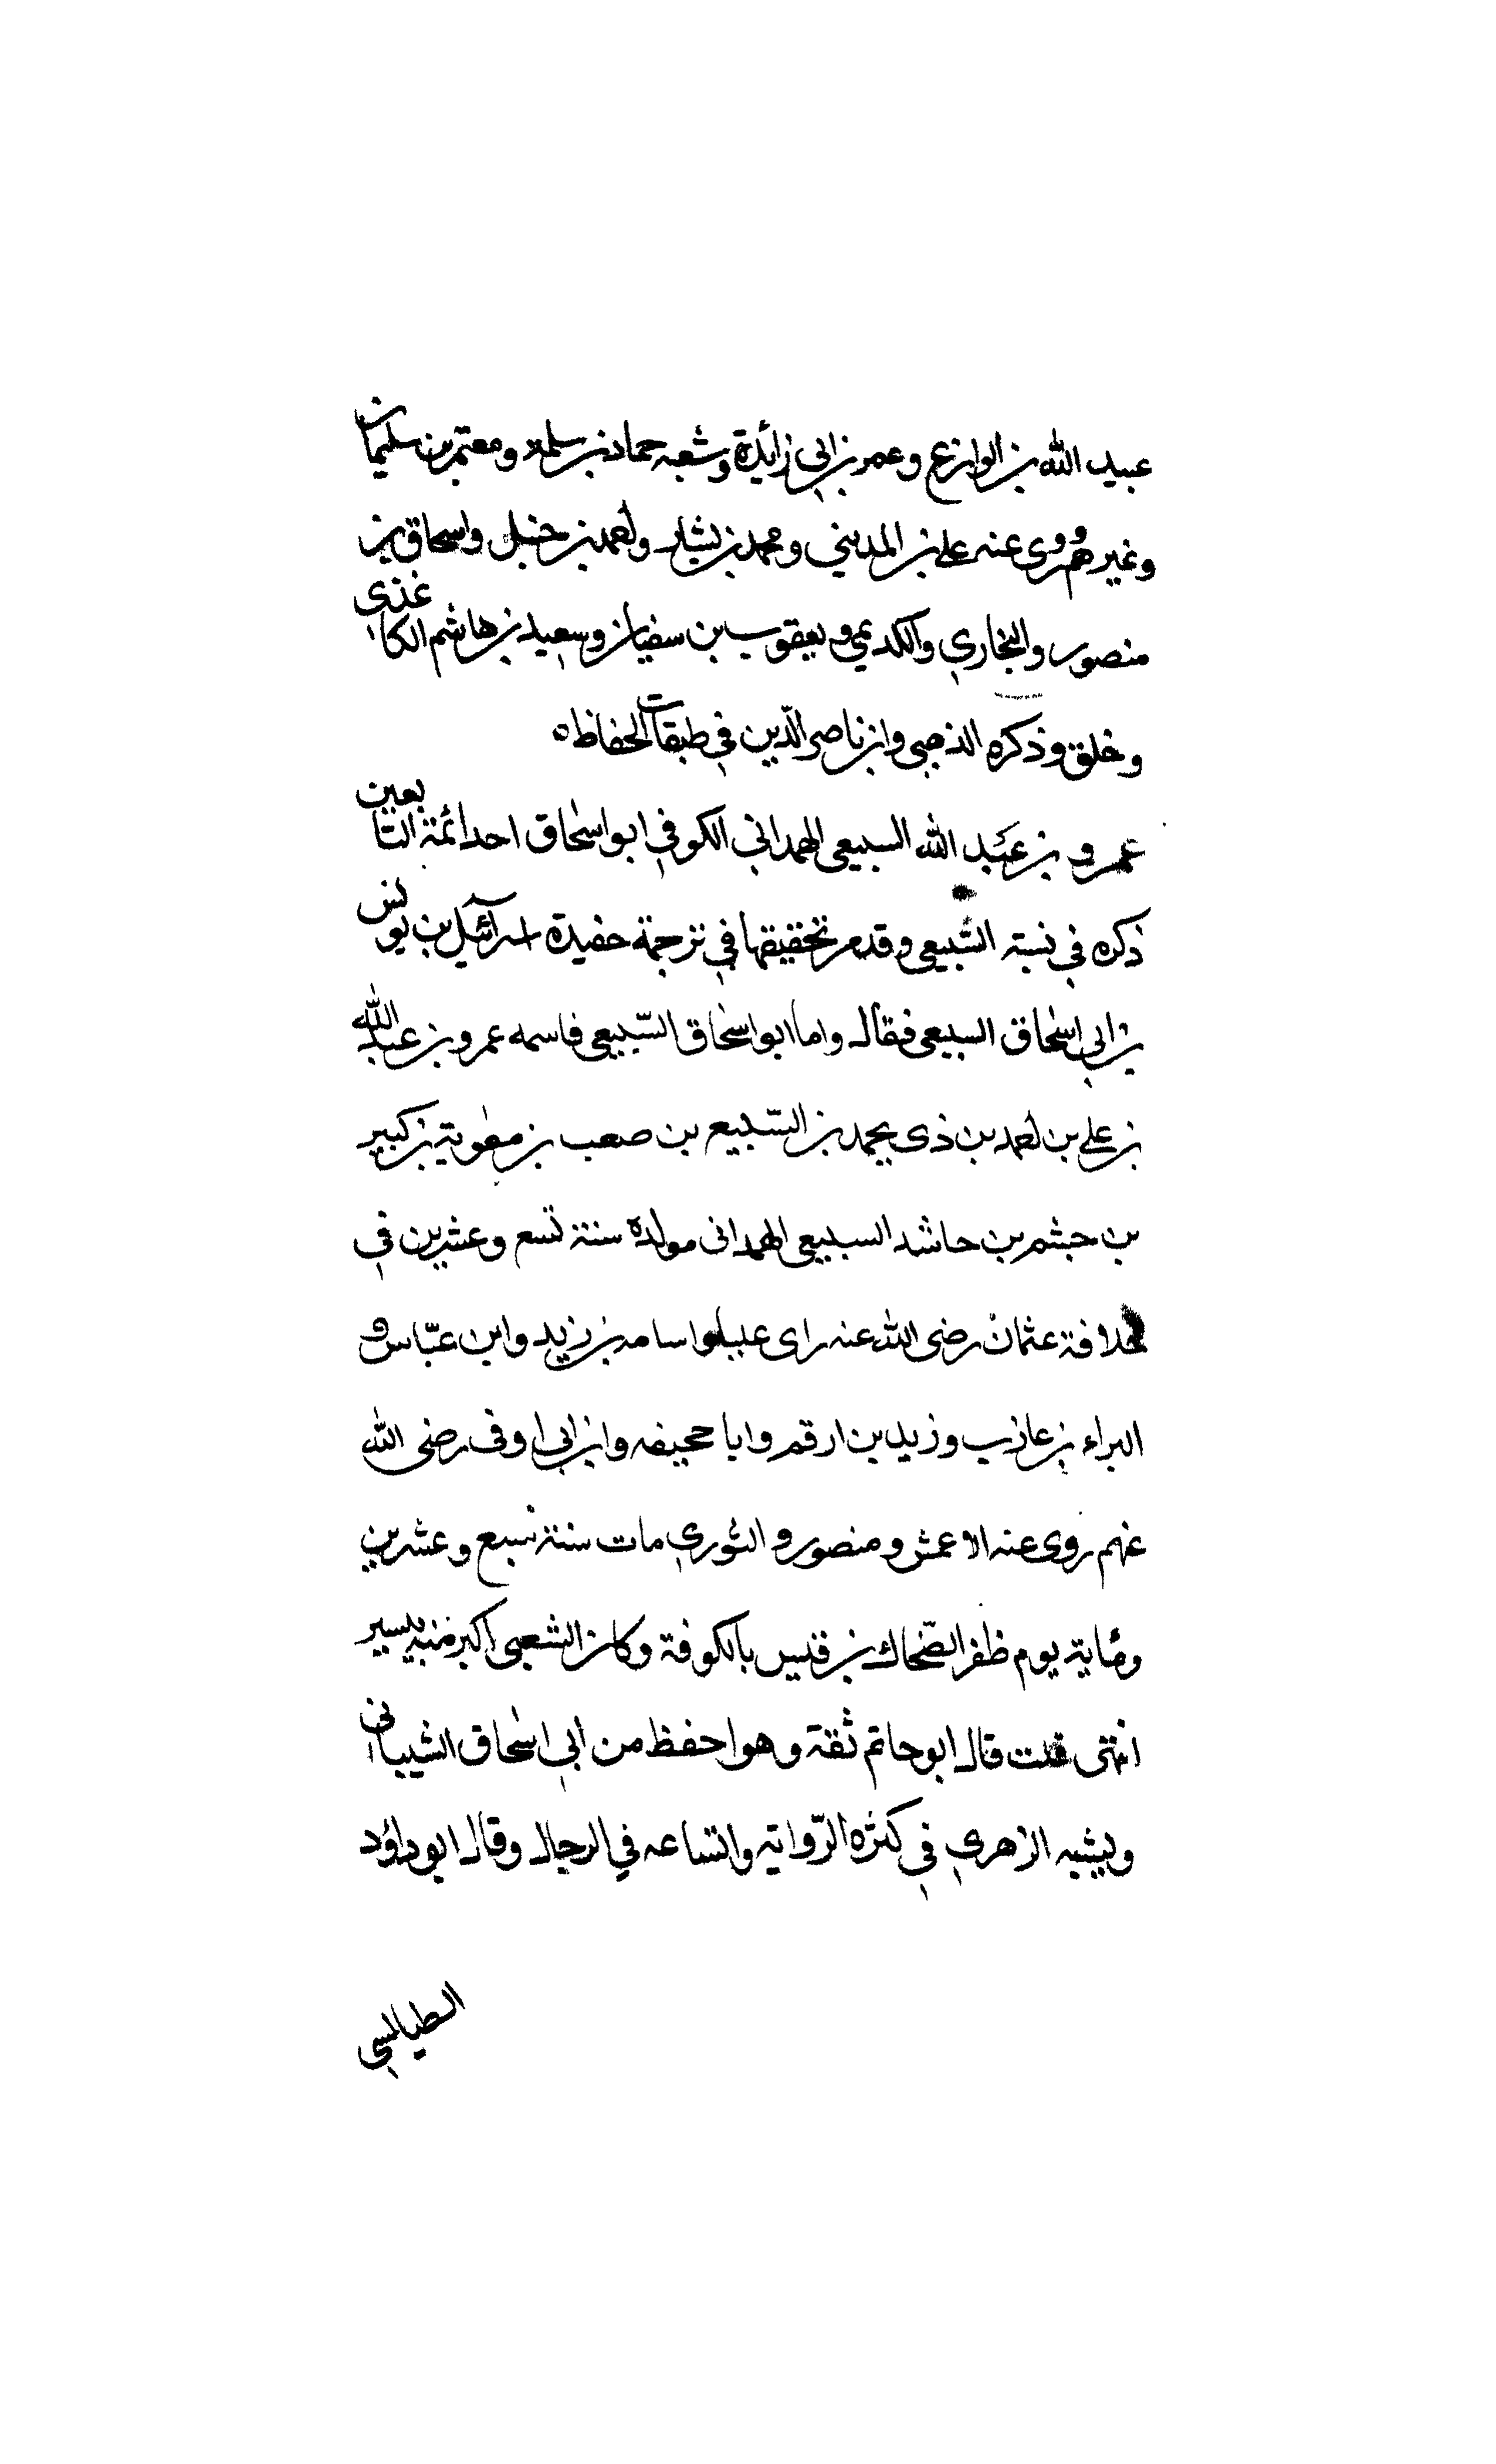 عبيد الله بن الوازع وعمر بن ابي زائدة وشعبه حماد بن سلمة ومعتمر بن سليمان
وغيرهم وروى عنه علي بن المديني ومحمد بن بشار واحمد بن حنبل واسحاق بن
منصور والبخاري والكديمي ويعقوب بن سفيان وسعيد بن هاشم الكاغذي
وخلق وذكره الذهبي وابن ناصر الدين في طبقات الحفاظ ه
عمرو بن عبد الله السبيعي الهمداني الكوفي ابو اسحاق احد ائمة التابعين
ذكره في نسبته السبيعي وقد مر تحقيقها في ترجمة حفيدة اسرآئيل بن يونس
بن ابي اسحاق السبيعي فقال واما ابو اسحاق السبيعي فاسمه عمرو بن عبد الله
بن علي بن احمد بن ذى يحمد بن السبيع بن صعب بن معوية بن كبير
بن جشم بن حاشد السبيعي الهمدانى مولده سنة تسع وعشرين في
خلافة عثمان رضى الله عنه راى عليا واسامه بن زيد وابن عباس و
البراء بن عازب وزيد بن ارقم وابا جحيفه وابن ابي اوفى رضى الله
عنهم روى عنه الاعمش ومنصور والثوري مات سنة سبع وعشرين
ومائة يوم ظفر الضحاك بن قيس بالكوفة وكان الشعبي اكبر منه بيسير
انتهى قلت قال ابو حاتم ثقة وهو احفظ من ابي اسحاق الشيبانى
ويشبه الزهري في كثره الرواية واتساعه في الرجال وقال ابو داؤد
الطيالسي